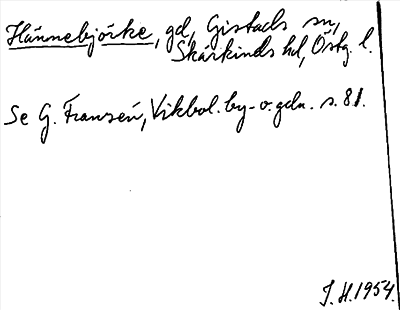 Hännebjörke, gd, Gistads sn,
Skärkinds hd, Östg. l.
Se G. Franzén, Vikbol. by- o. gdn. s. 81.
J. H. 1954.